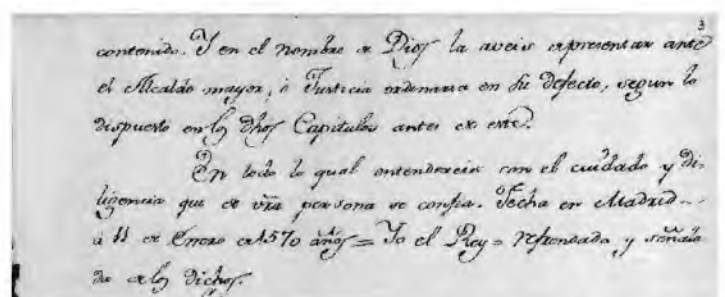 3
contenido. Y en el nombre de Dios la aveis de presentar ante
el Alcalde mayor, ó Justicia ordinaria en su defecto, segun lo
dispuesto en los dhos Capitulos antes de este.
En todo lo qual entendereis con el cuidado y di-
ligencia que de vra persona se confia. Fecha en Madrid
á 11 de Enero de 1570 años = Yo el Rey = Refrendada, y señala
da de los dichos.